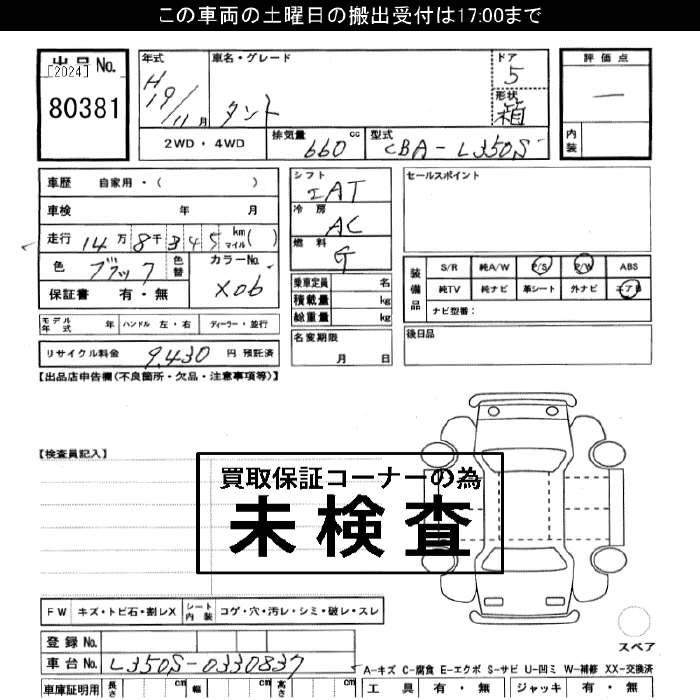 この車両の土曜日の搬出受付は17:00まで
出品No.
[2024]
80381
年式
H19/11月
車名・グレード
タント
ドア
5
形状
箱
評価点
—
内装
2WD・4WD
排気量
660 cc
型式
CBA-L350S
車歴 自家用・( )
車検 年 月
走行 14万8千345 km マイル( )
色 ブラック 色替
カラーNo.
X06
保証書 有・無
シフト
IAT
冷房
AC
燃料
G
乗車定員 名
積載量 kg
総重量 kg
セールスポイント
装備品
S/R 純A/W P/S P/W ABS
純TV 純ナビ 革シート 外ナビ エアB
ナビ型番:
モデル年式 年 ハンドル 左・右 ディーラー・並行
名変期限
月 日
後日品
リサイクル料金 9,430 円 預託済
【出品店申告欄(不良箇所・欠品・注意事項等)】
【検査員記入】
買取保証コーナーの為
未検査
FW キズ・トビ石・割レX シート内装 コゲ・穴・汚レ・シミ・破レ・スレ
スペア
登録No.
車台No. L350S-0330837
A-キズ C-腐食 E-エクボ S-サビ U-凹ミ W-補修 XX-交換済
車庫証明用 長さ cm 幅 cm 高さ cm
工具 有・無 ジャッキ 有・無